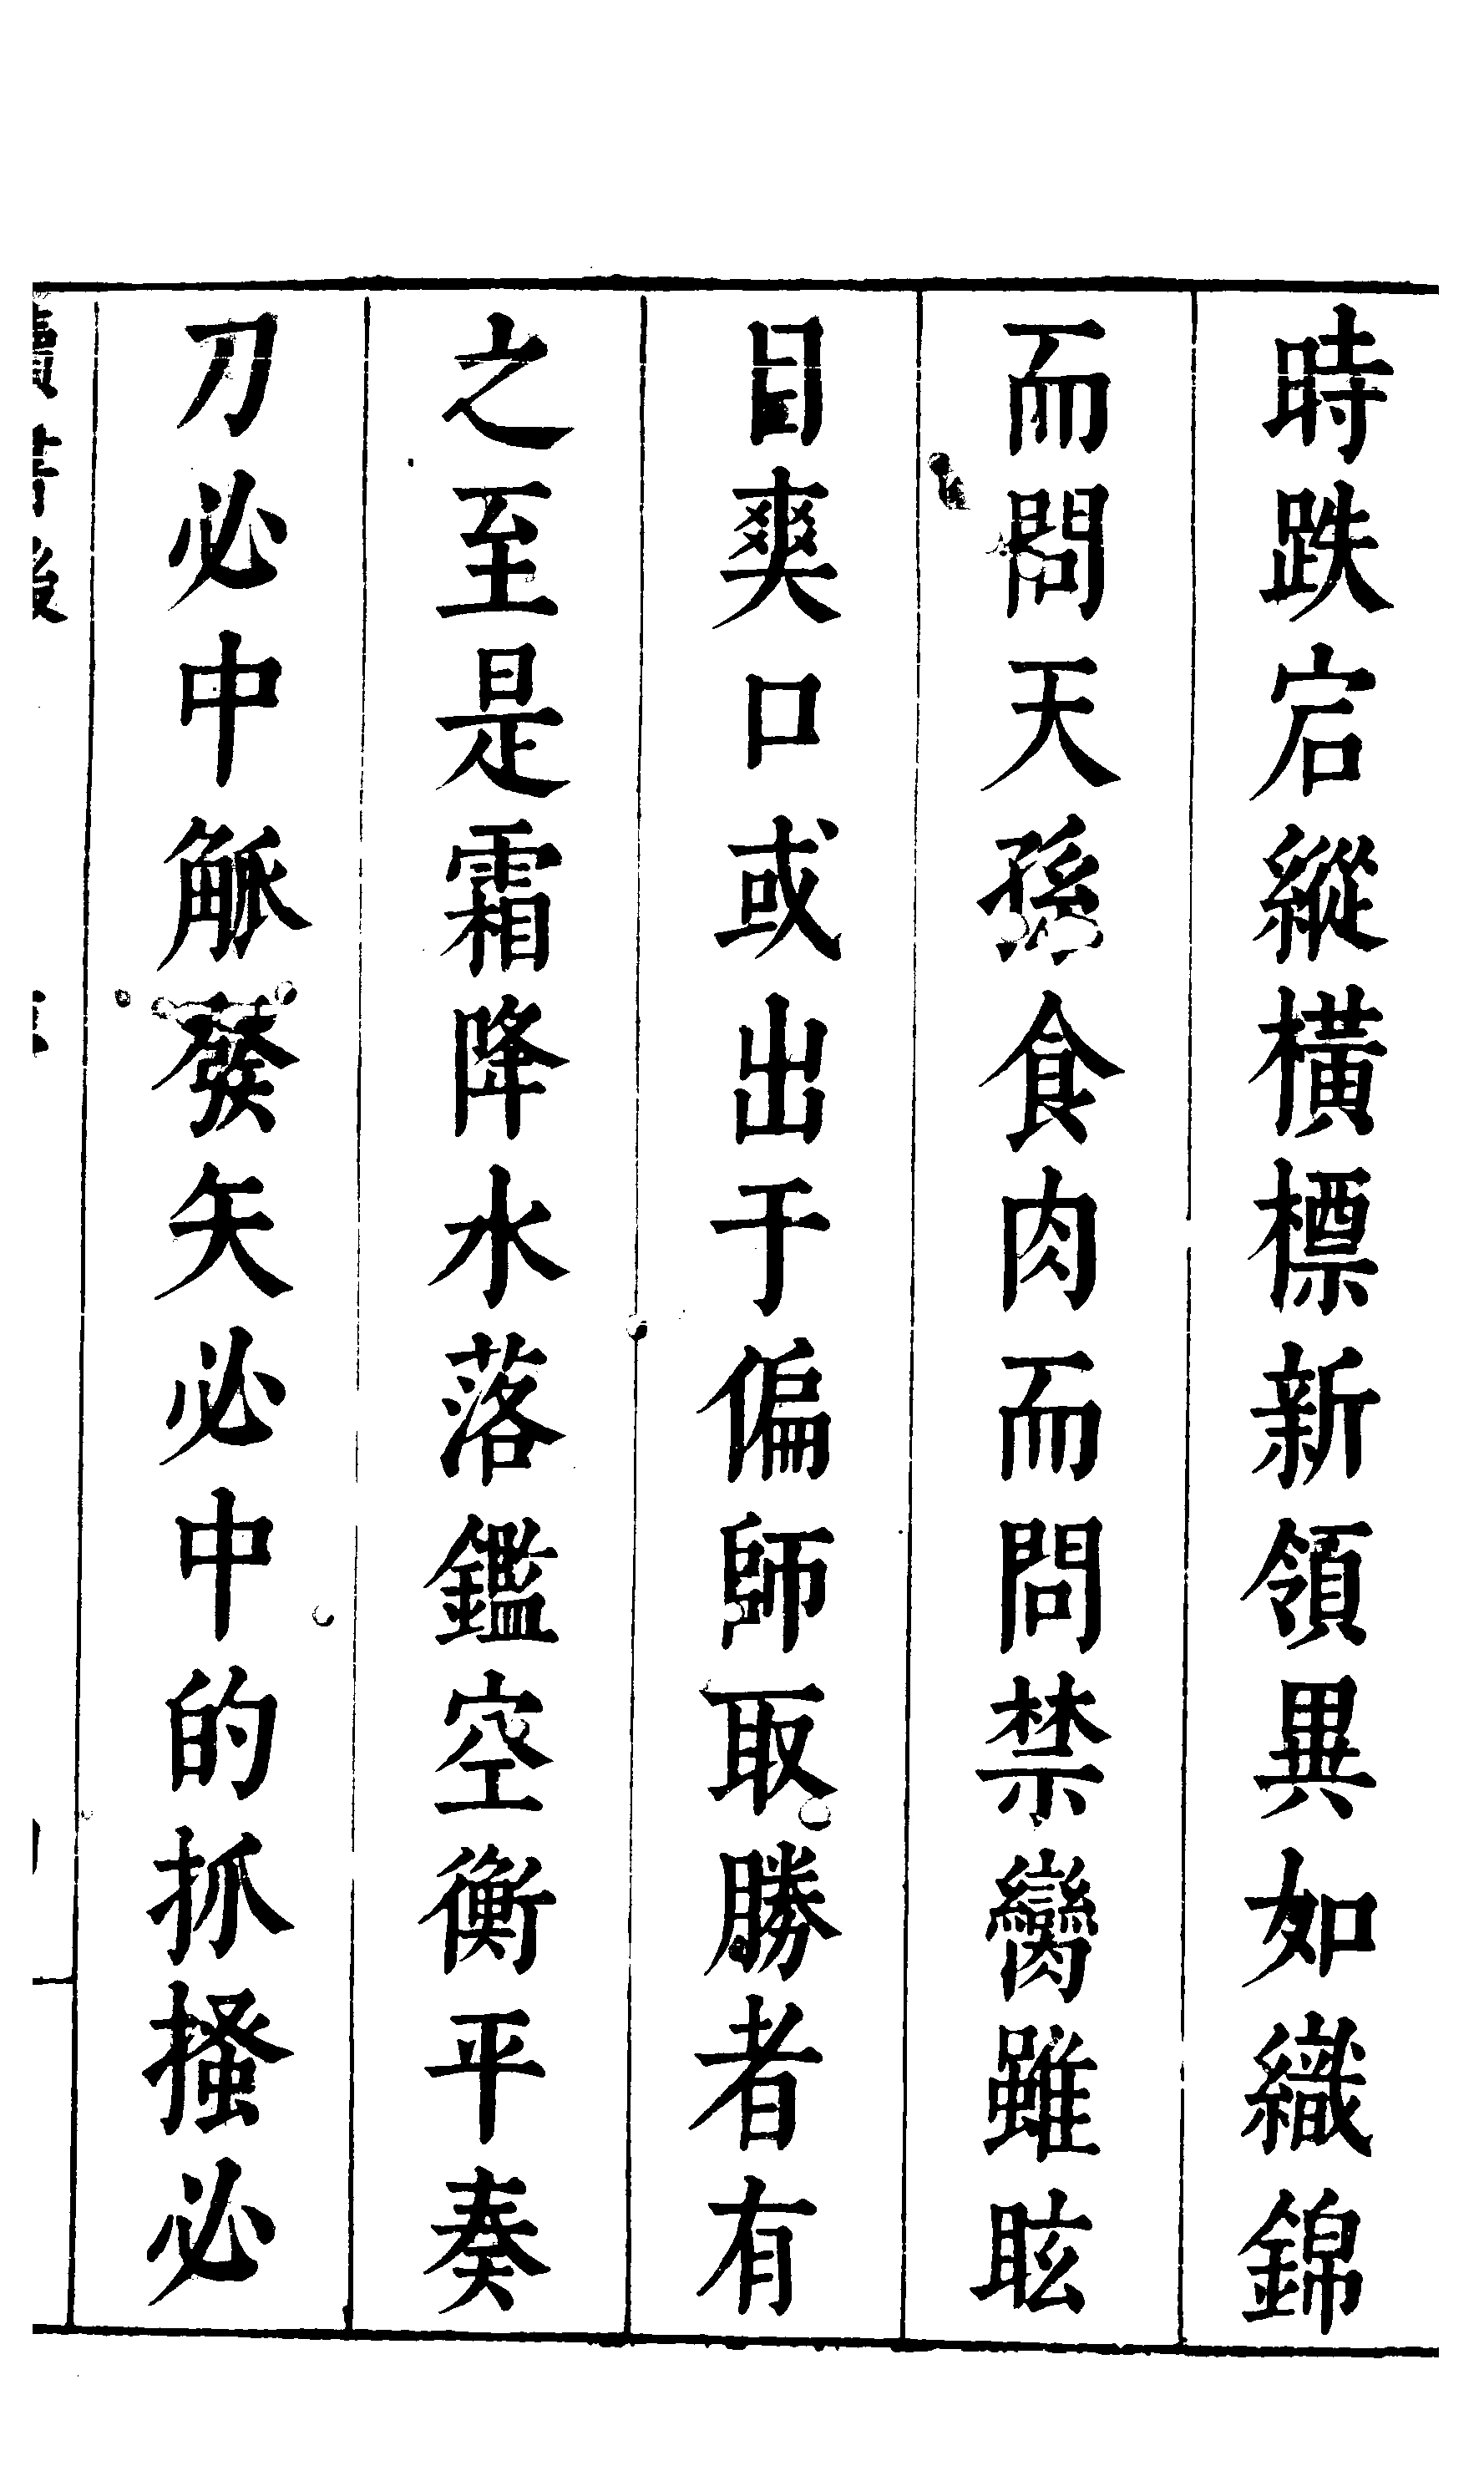 時跌宕縱橫標新領異如織錦
而問天孫食肉而問禁臠雖眩
目爽口或出于偏師取勝者有
之至是霜降水落鑑空衡平奏
刀必中觚發矢必中的抓搔必